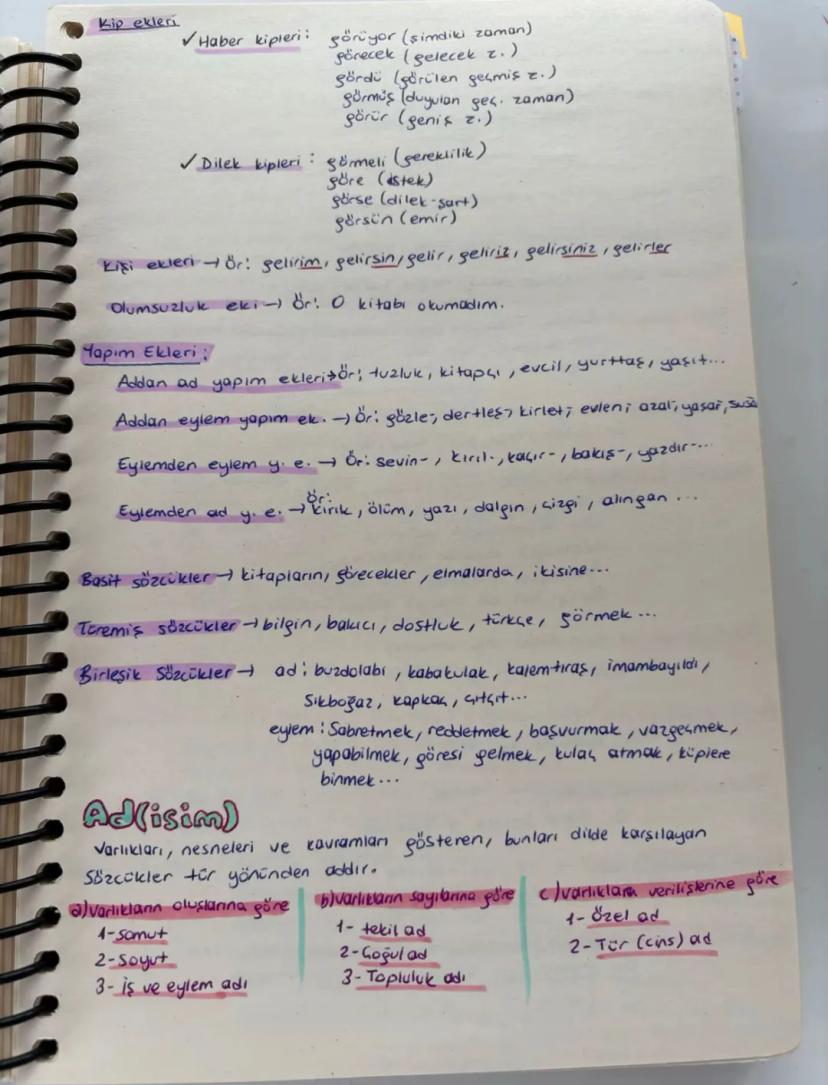 Kip ekleri
✓ Haber kipleri: görüyor (şimdiki zaman)
görecek (gelecek z.)
gördü (görülen geçmiş z.)
görmüş (duyulan geç. zaman)
görür (geniş z.)
✓ Dilek kipleri: görmeli (gereklilik)
göre (istek)
görse (dilek-şart)
görsün (emir)
Kişi ekleri → Ör: gelirim, gelirsin, gelir, geliriz, gelirsiniz, gelirler
Olumsuzluk eki → Ör: O kitabı okumadım.
Yapım Ekleri:
Addan ad yapım ekleri → Ör: tuzluk, kitapçı, evcil, yurttaş, yaşıt...
Addan eylem yapım ek. → Ör: gözle-, dertleş-, kirlet-, evlen-, azal-, yaşar-, susa
Eylemden eylem y. e. → Ör: sevin-, kırıl-, kaçır-, bakış-, yazdır-...
Eylemden ad y. e. → Ör: kırık, ölüm, yazı, dalgın, çizgi, alıngan ...
Basit sözcükler → kitapların, görecekler, elmalarda, ikisine...
Türemiş sözcükler → bilgin, bakıcı, dostluk, türkçe, görmek ...
Birleşik Sözcükler → ad: buzdolabı, kabakulak, kalemtıraş, imambayıldı,
Sıkboğaz, kapkaç, çıtçıt...
eylem: Sabretmek, reddetmek, başvurmak, vazgeçmek,
yapabilmek, göresi gelmek, kulaç atmak, küplere
binmek...
Ad(isim)
Varlıkları, nesneleri ve kavramları gösteren, bunları dilde karşılayan
Sözcükler tür yönünden addır.
a) Varlıkların oluşlarına göre
1- somut
2- soyut
3- iş ve eylem adı
b) Varlıkların sayılarına göre
1- tekil ad
2- Çoğul ad
3- Topluluk adı
c) Varlıklara verilişlerine göre
1- Özel ad
2- Tür (cins) ad